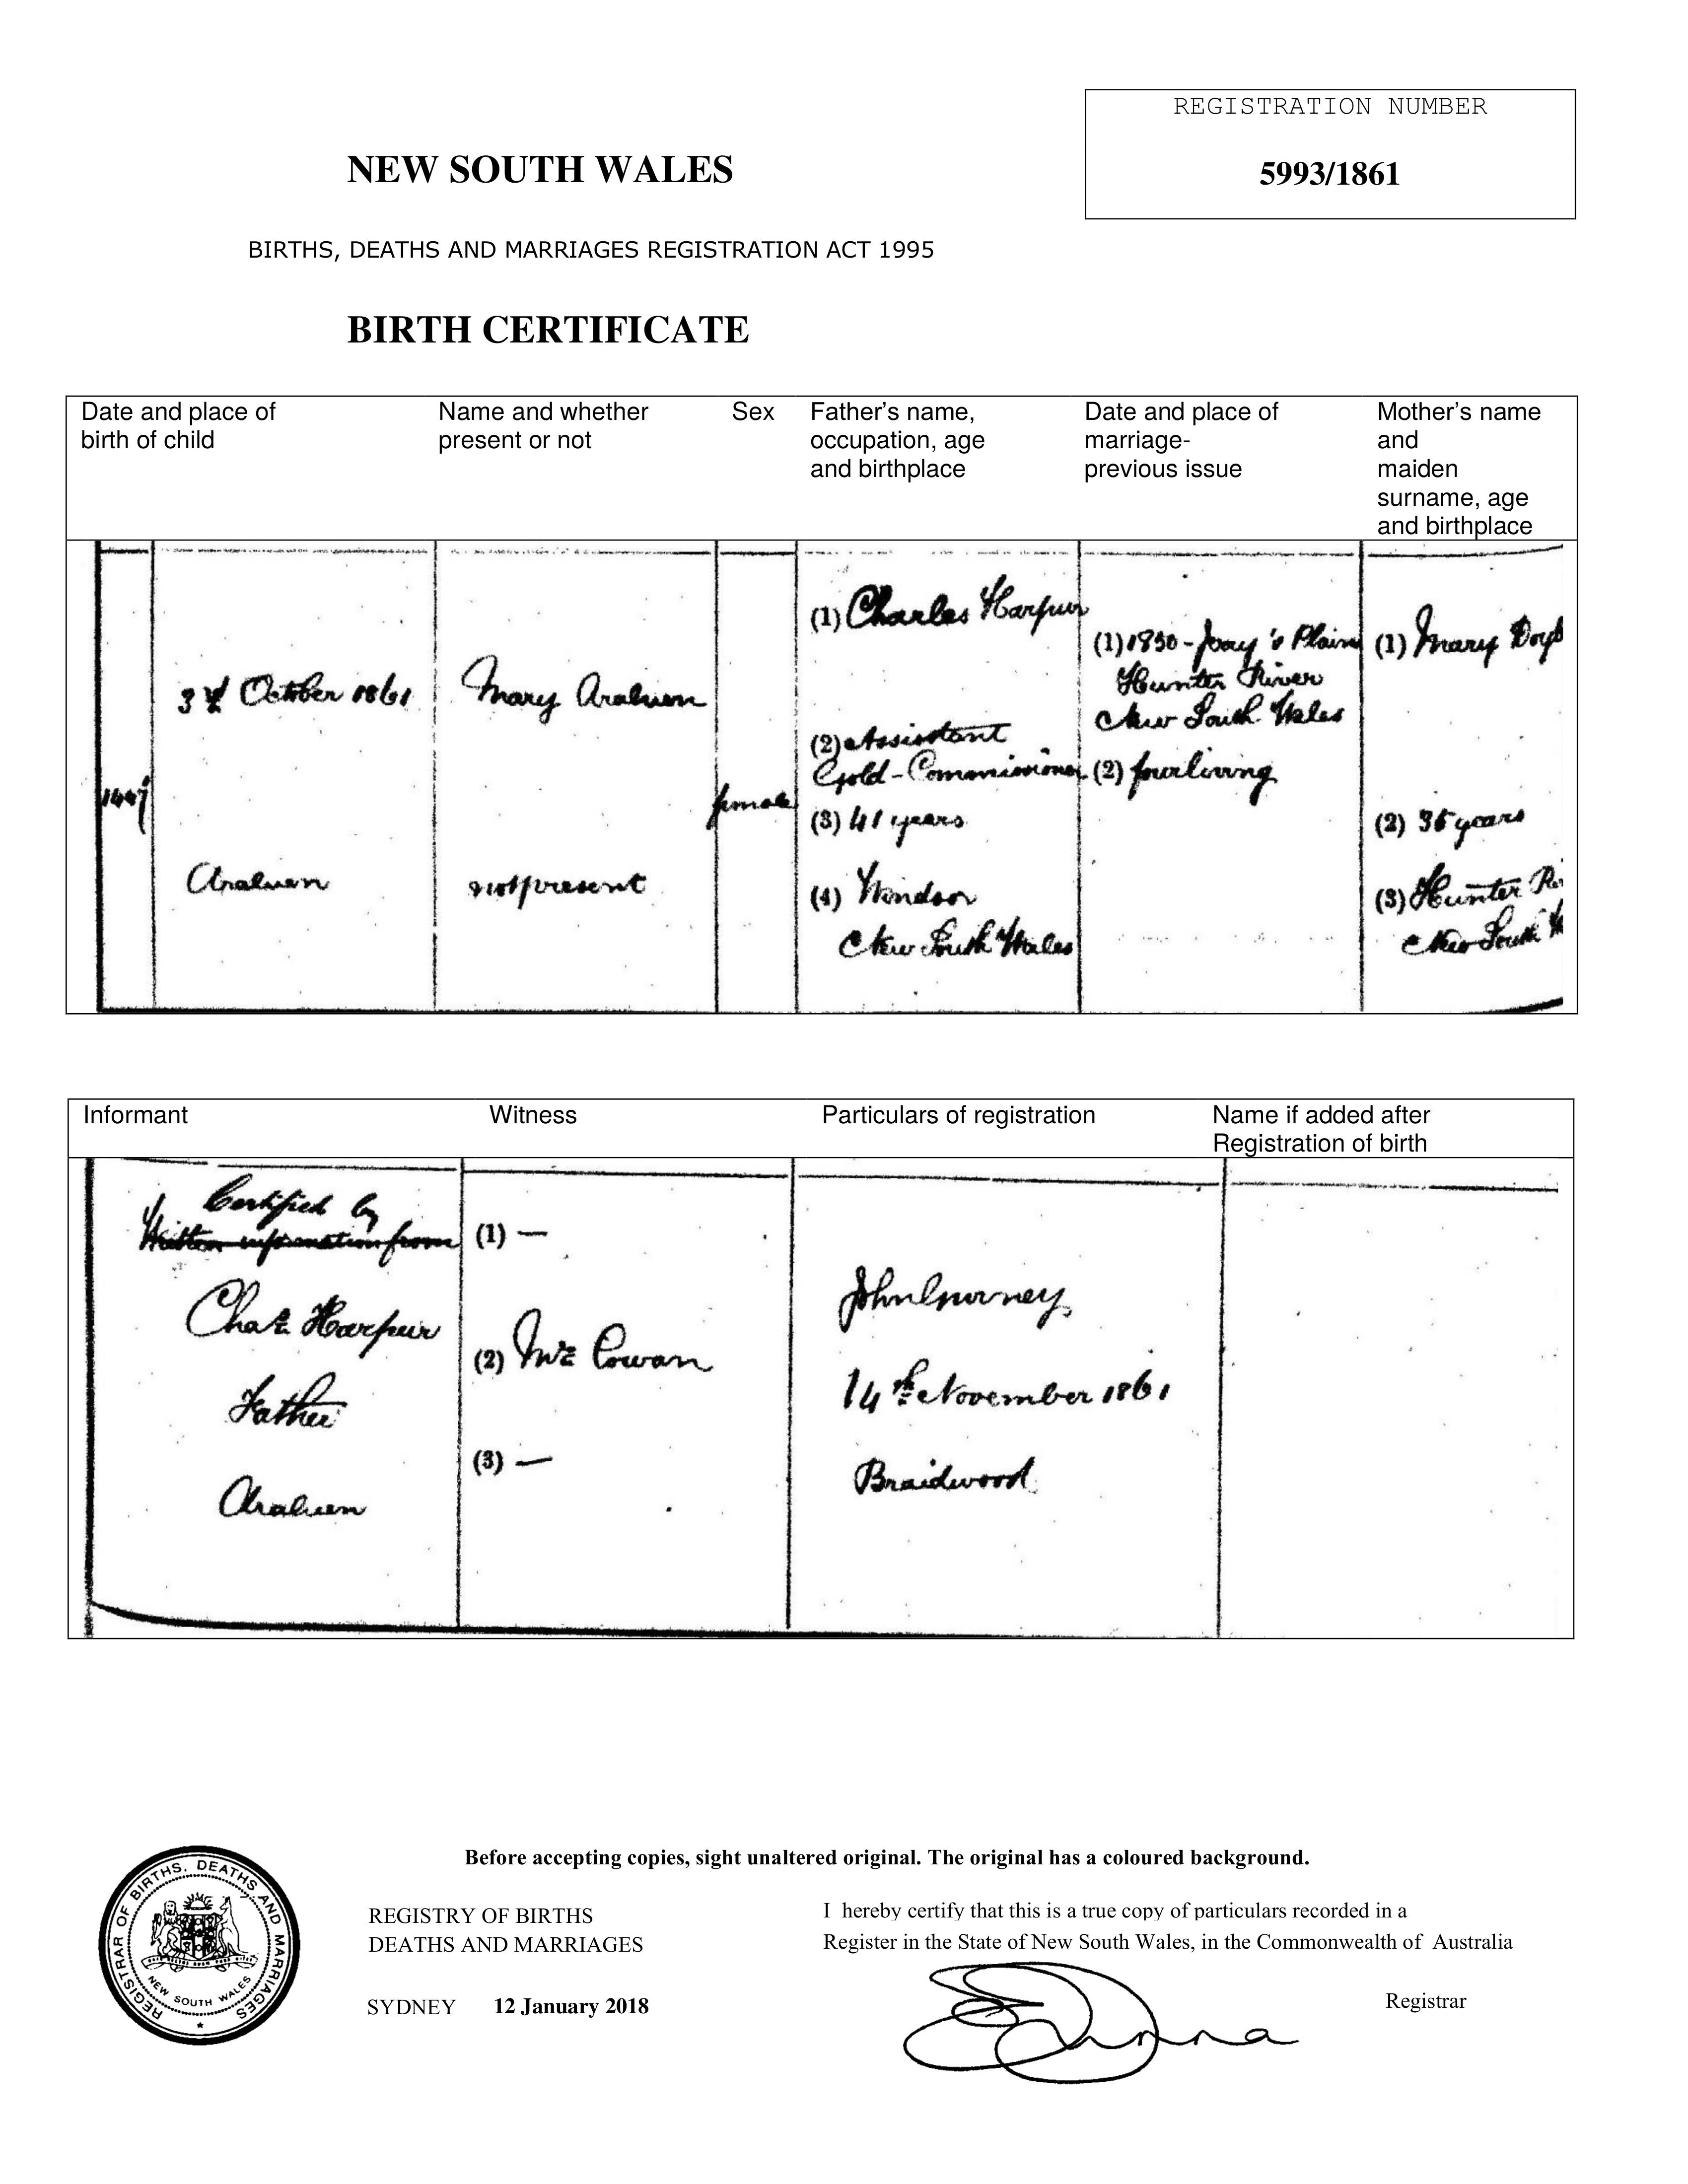 REGISTRATION NUMBER
5993/1861
NEW SOUTH WALES
BIRTHS, DEATHS AND MARRIAGES REGISTRATION ACT 1995
BIRTH CERTIFICATE
Date and place of birth of child
Name and whether present or not
Sex
Father's name, occupation, age and birthplace
Date and place of marriage- previous issue
Mother's name and maiden surname, age and birthplace
3rd October 1861
Araluen
Mary Araluen
not present
female
(1) Charles Harpur
(2) Assistant
Gold-Commissioner
(3) 41 years
(4) Windsor
New South Wales
(1) 1850 - Jerry's Plains
Hunter River
New South Wales
(2) four living
(1) Mary
(2) 35 years
(3) Hunter
New South
Informant
Witness
Particulars of registration
Name if added after Registration of birth
Certified by
Written information from
Chas. Harpur
Father
Araluen
(1) —
(2) Mrs Cowan
(3) —
John Gurney
14th November 1861
Braidwood
Before accepting copies, sight unaltered original. The original has a coloured background.
REGISTRAR OF BIRTHS, DEATHS AND MARRIAGES
NEW SOUTH WALES
REGISTRY OF BIRTHS
DEATHS AND MARRIAGES
SYDNEY 12 January 2018
I hereby certify that this is a true copy of particulars recorded in a
Register in the State of New South Wales, in the Commonwealth of Australia
Registrar